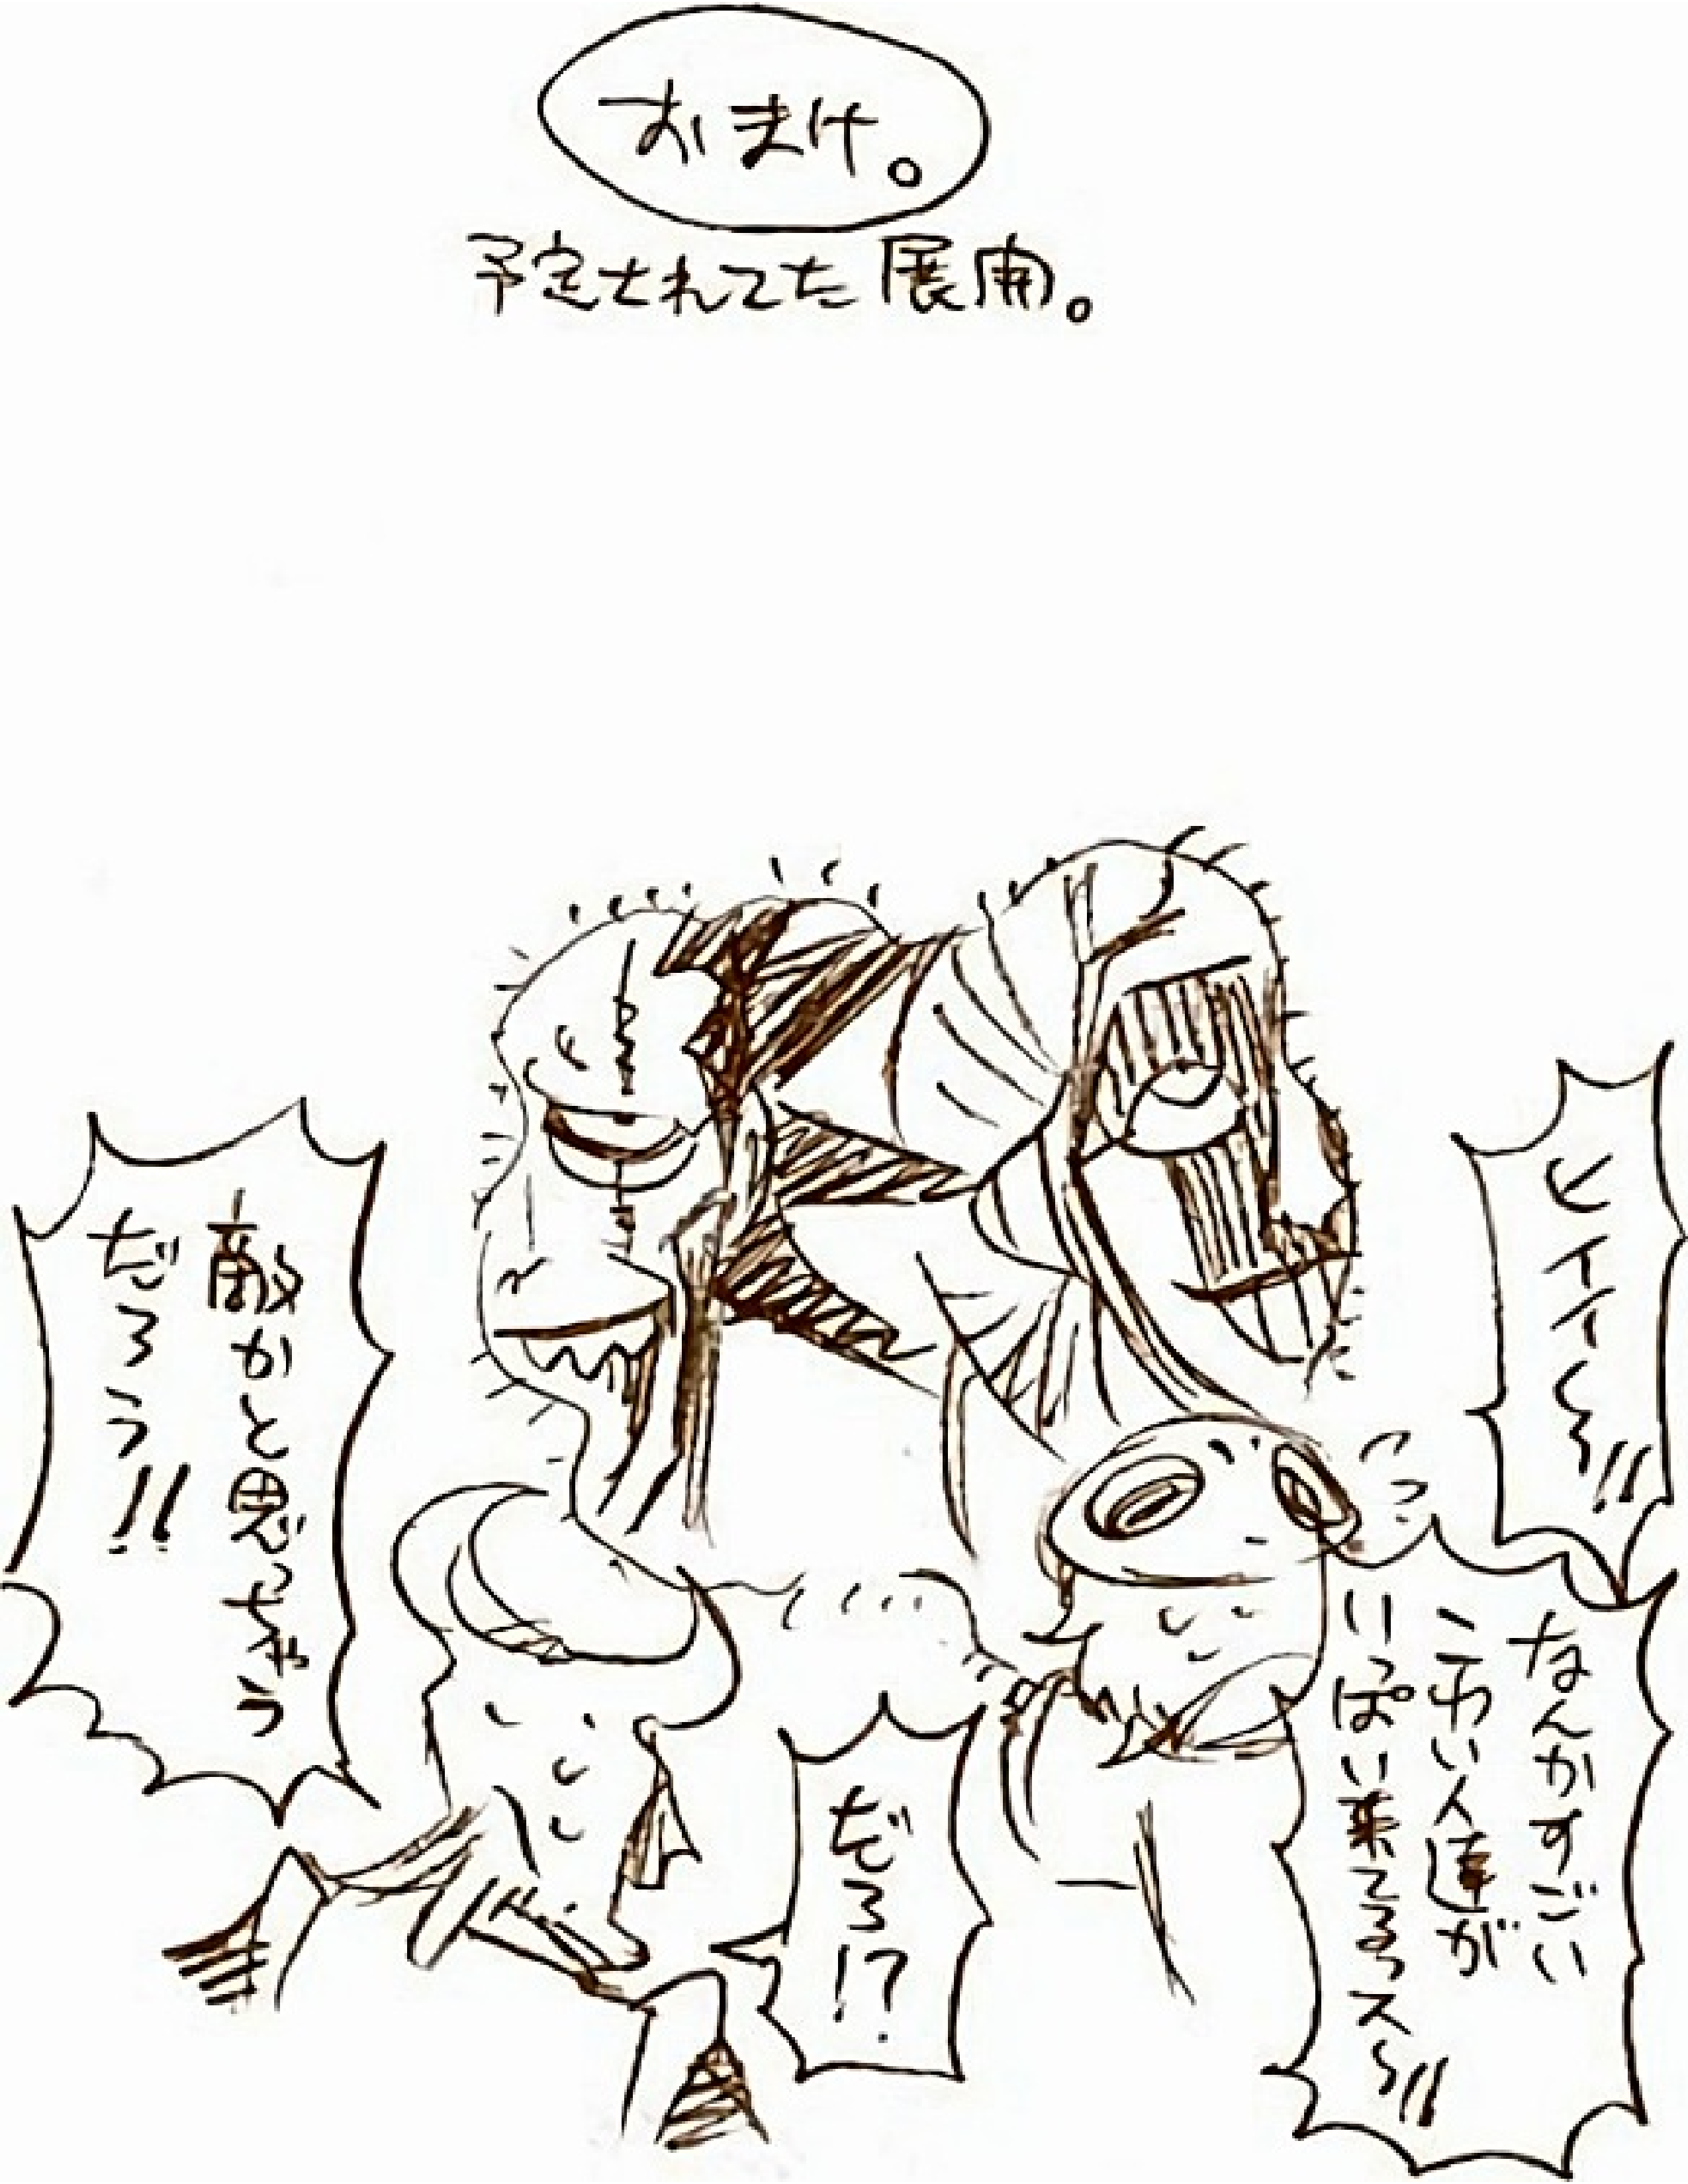 おまけ。
予定されてた展開。
ヒイイ〜!!
なんかすごい
こわい人達が
いっぱい来てるっス〜!!
だろ!?
敵かと思っちゃう
だろう!!